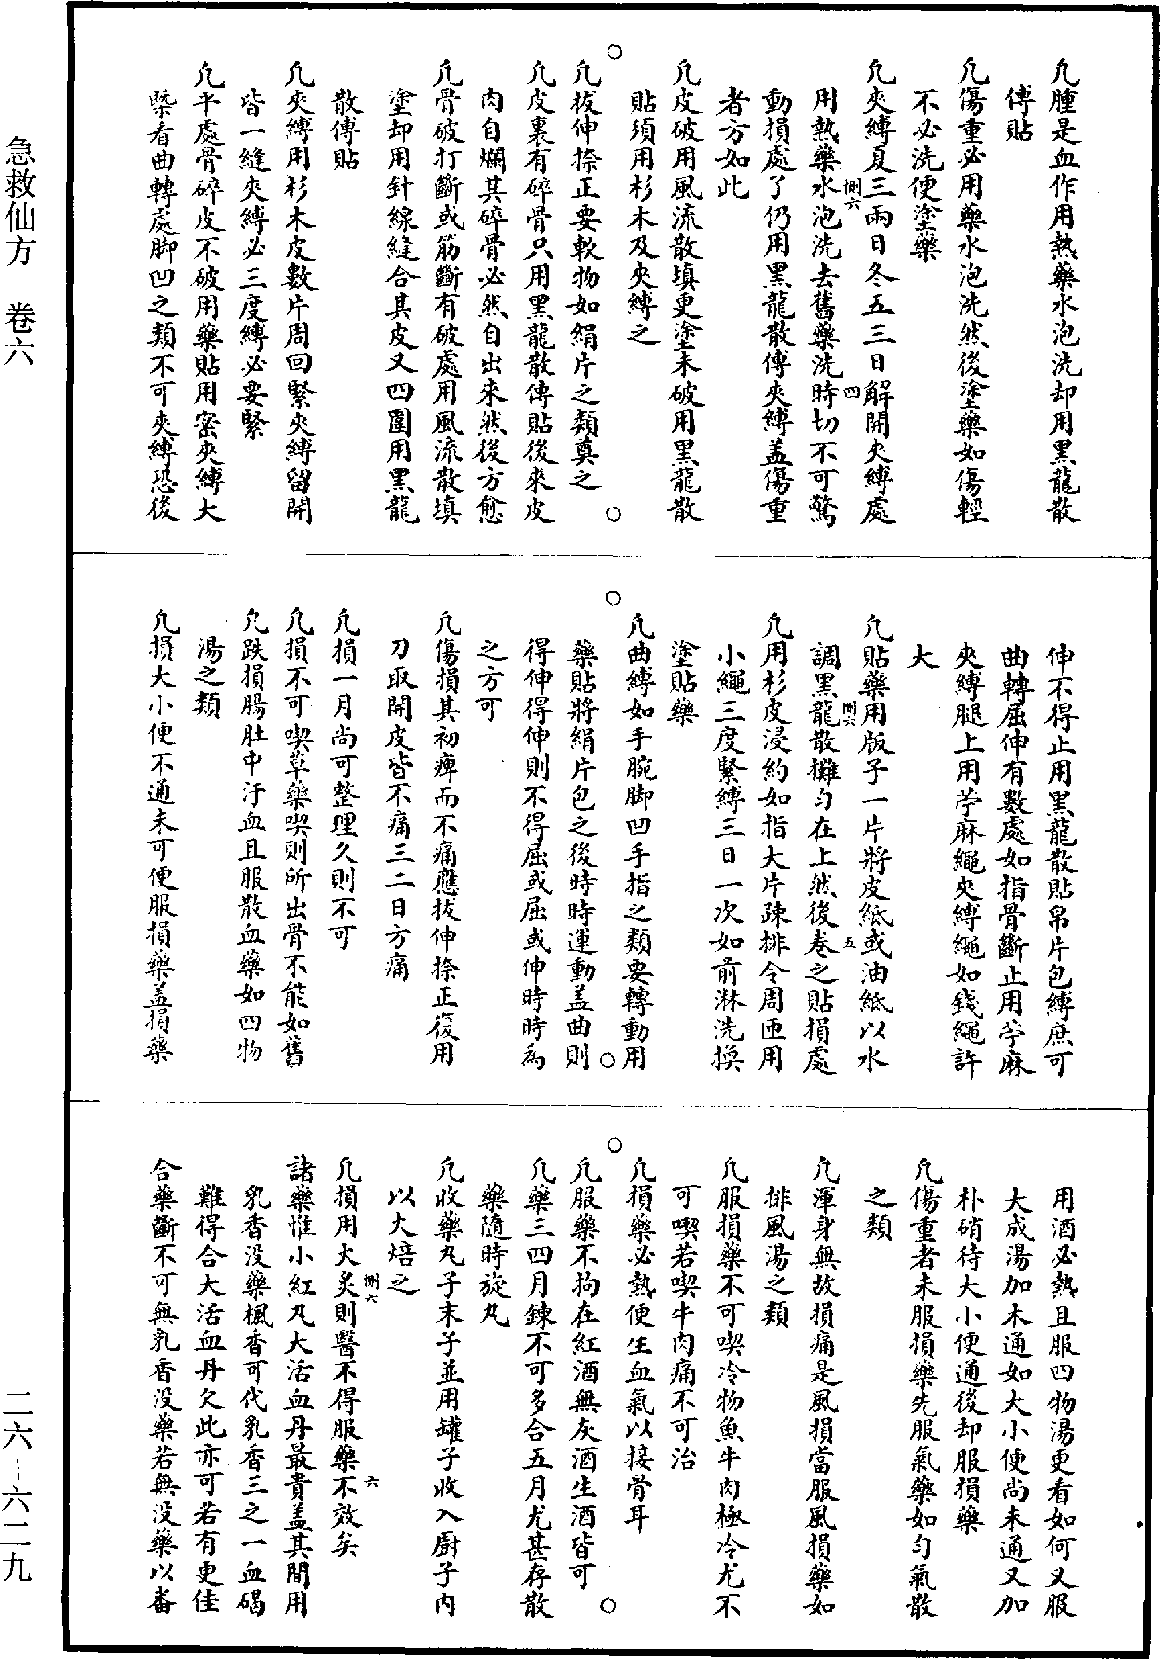 急救仙方　卷六
凡腫是血作用熱藥水泡洗却用黑龍散
傅貼
凡傷重必用藥水泡洗然後塗藥如傷輕
不必洗便塗藥
凡夾縛夏三兩日冬五三日解開夾縛處
用熱藥水泡洗去舊藥洗時切不可驚
動損處了仍用黑龍散傅夾縛盖傷重
者方如此
凡皮破用風流散填更塗未破用黑龍散
貼須用杉木皮夾縛之
凡拔伸捺正要軟物如絹片之類奠之
凡皮裏有碎骨只用黑龍散傅貼後來皮
肉自爛其碎骨必然自出來然後方愈
凡骨破打斷或筋斷有破處用風流散填
塗却用針線縫合其皮又四圍用黑龍
散傅貼
凡夾縛用杉木皮數片周回緊夾縛留開
皆一縫夾縛必三度縛必要緊
凡平處骨碎皮不破用藥貼用密夾縛大
槩看曲轉處脚凹之類不可夾縛恐後
伸不得止用黑龍散貼帛片包縛庶可
曲轉屈伸有數處如指骨斷止用苧麻
夾縛腿上用苧麻繩夾縛繩如錢繩許
大
凡貼藥用版子一片將皮紙或油紙以水
調黑龍散攤勻在上然後卷之貼損處
凡用杉皮浸約如指大片疎排令周匝用
小繩三度緊縛三日一次如前淋洗換
塗貼藥
凡曲縛如手腕脚凹手指之類要轉動用
藥貼將絹片包之後時時運動盖曲則
得伸得伸則不得屈或屈或伸時時為
之方可
凡傷損其初痺而不痛應拔伸捺正復用
刀取開皮皆不痛三二日方痛
凡損一月尚可整理久則不可
凡損不可喫草藥喫則所出骨不能如舊
凡跌損腸肚中汙血且服散血藥如四物
湯之類
凡損大小便不通未可便服損藥盖損藥
用酒必熱且服四物湯更看如何又服
大成湯加木通如大小便尚未通又加
朴硝待大小便通後却服損藥
凡傷重者未服損藥先服氣藥如勻氣散
之類
凡渾身無故損痛是風損當服風損藥如
排風湯之類
凡服損藥不可喫冷物魚牛肉極冷尤不
可喫若喫牛肉痛不可治
凡損藥必熱便生血氣以接骨耳
凡服藥不拘在紅酒無灰酒生酒皆可
凡藥三四月鍊不可多合五月尤甚存散
藥隨時旋丸
凡收藥丸子末子並用罐子收入廚子內
以火焙之
凡損用火炙則醫不得服藥不效矣
諸藥惟小紅丸大活血丹最貴盖其間用
乳香没藥楓香可代乳香三之一血碣
難得合大活血丹欠此亦可若有更佳
合藥斷不可無乳香没藥若無没藥以番
二六—六二九